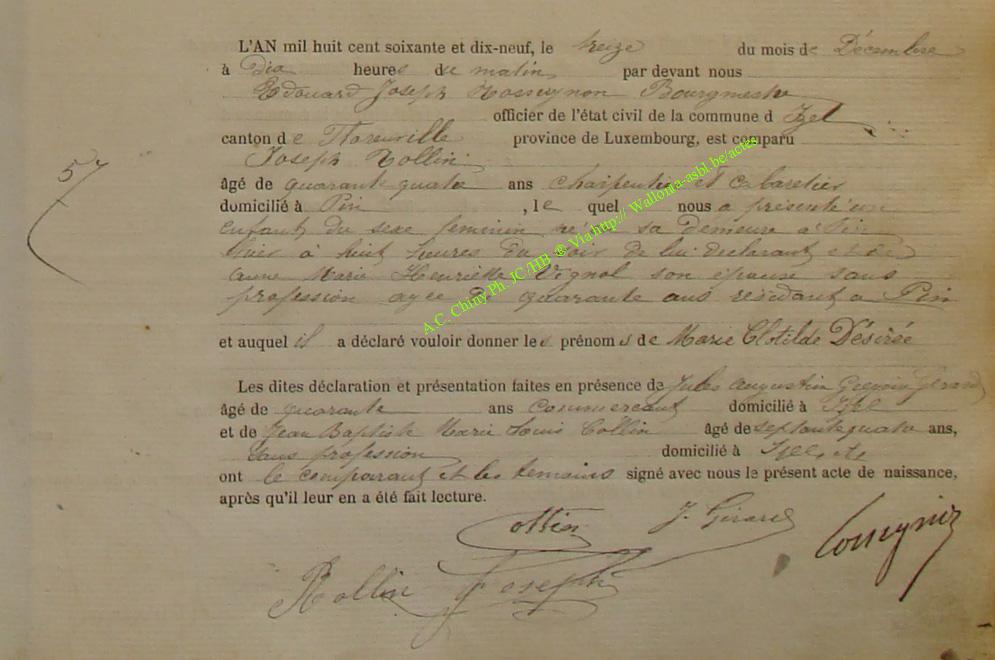 L'AN mil huit cent soixante et dix-neuf, le treize du mois de Décembre
à Dix heures du matin par devant nous
Edouard Joseph Bourgmestre
officier de l'état civil de la commune d Izel
canton de Florenville province de Luxembourg, est comparu
Joseph Rollin
57
âgé de quarante quatre ans charpentier et cabaretier
domicilié à Pin , le quel nous a présenté un
enfant du sexe feminin né en sa demeure à Pin
hier à huit heures du soir de lui déclarant et de
Marie Henriette Vignol son épouse sans
profession agée de quarante ans résidant a Pin
et auquel il a déclaré vouloir donner les prénoms de Marie Clotilde Désirée
Les dites déclaration et présentation faites en présence de Jules Augustin Girard
âgé de quarante ans commercant domicilié à Izel
et de Jean Baptiste Marie Louis Collin âgé de septante quatre ans,
sans profession domicilié à Izel
ont le comparant et les temoins signé avec nous le présent acte de naissance,
après qu'il leur en a été fait lecture.
Collin J. Girard
Rollin Joseph
A.C. Chiny Ph. JC/HB ® Via http:// Wallonia-asbl.be/actes